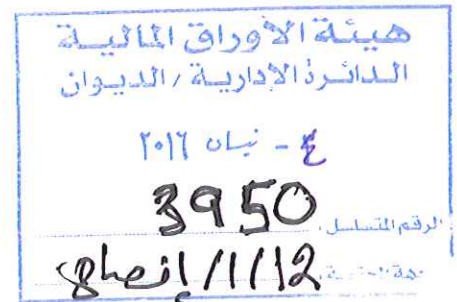 هيئة الأوراق المالية
الدائرة الادارية / الديوان
٤ - نيسان ٢٠١٦
الرقم المتسلسل 3950
12/1/1/إفصاح